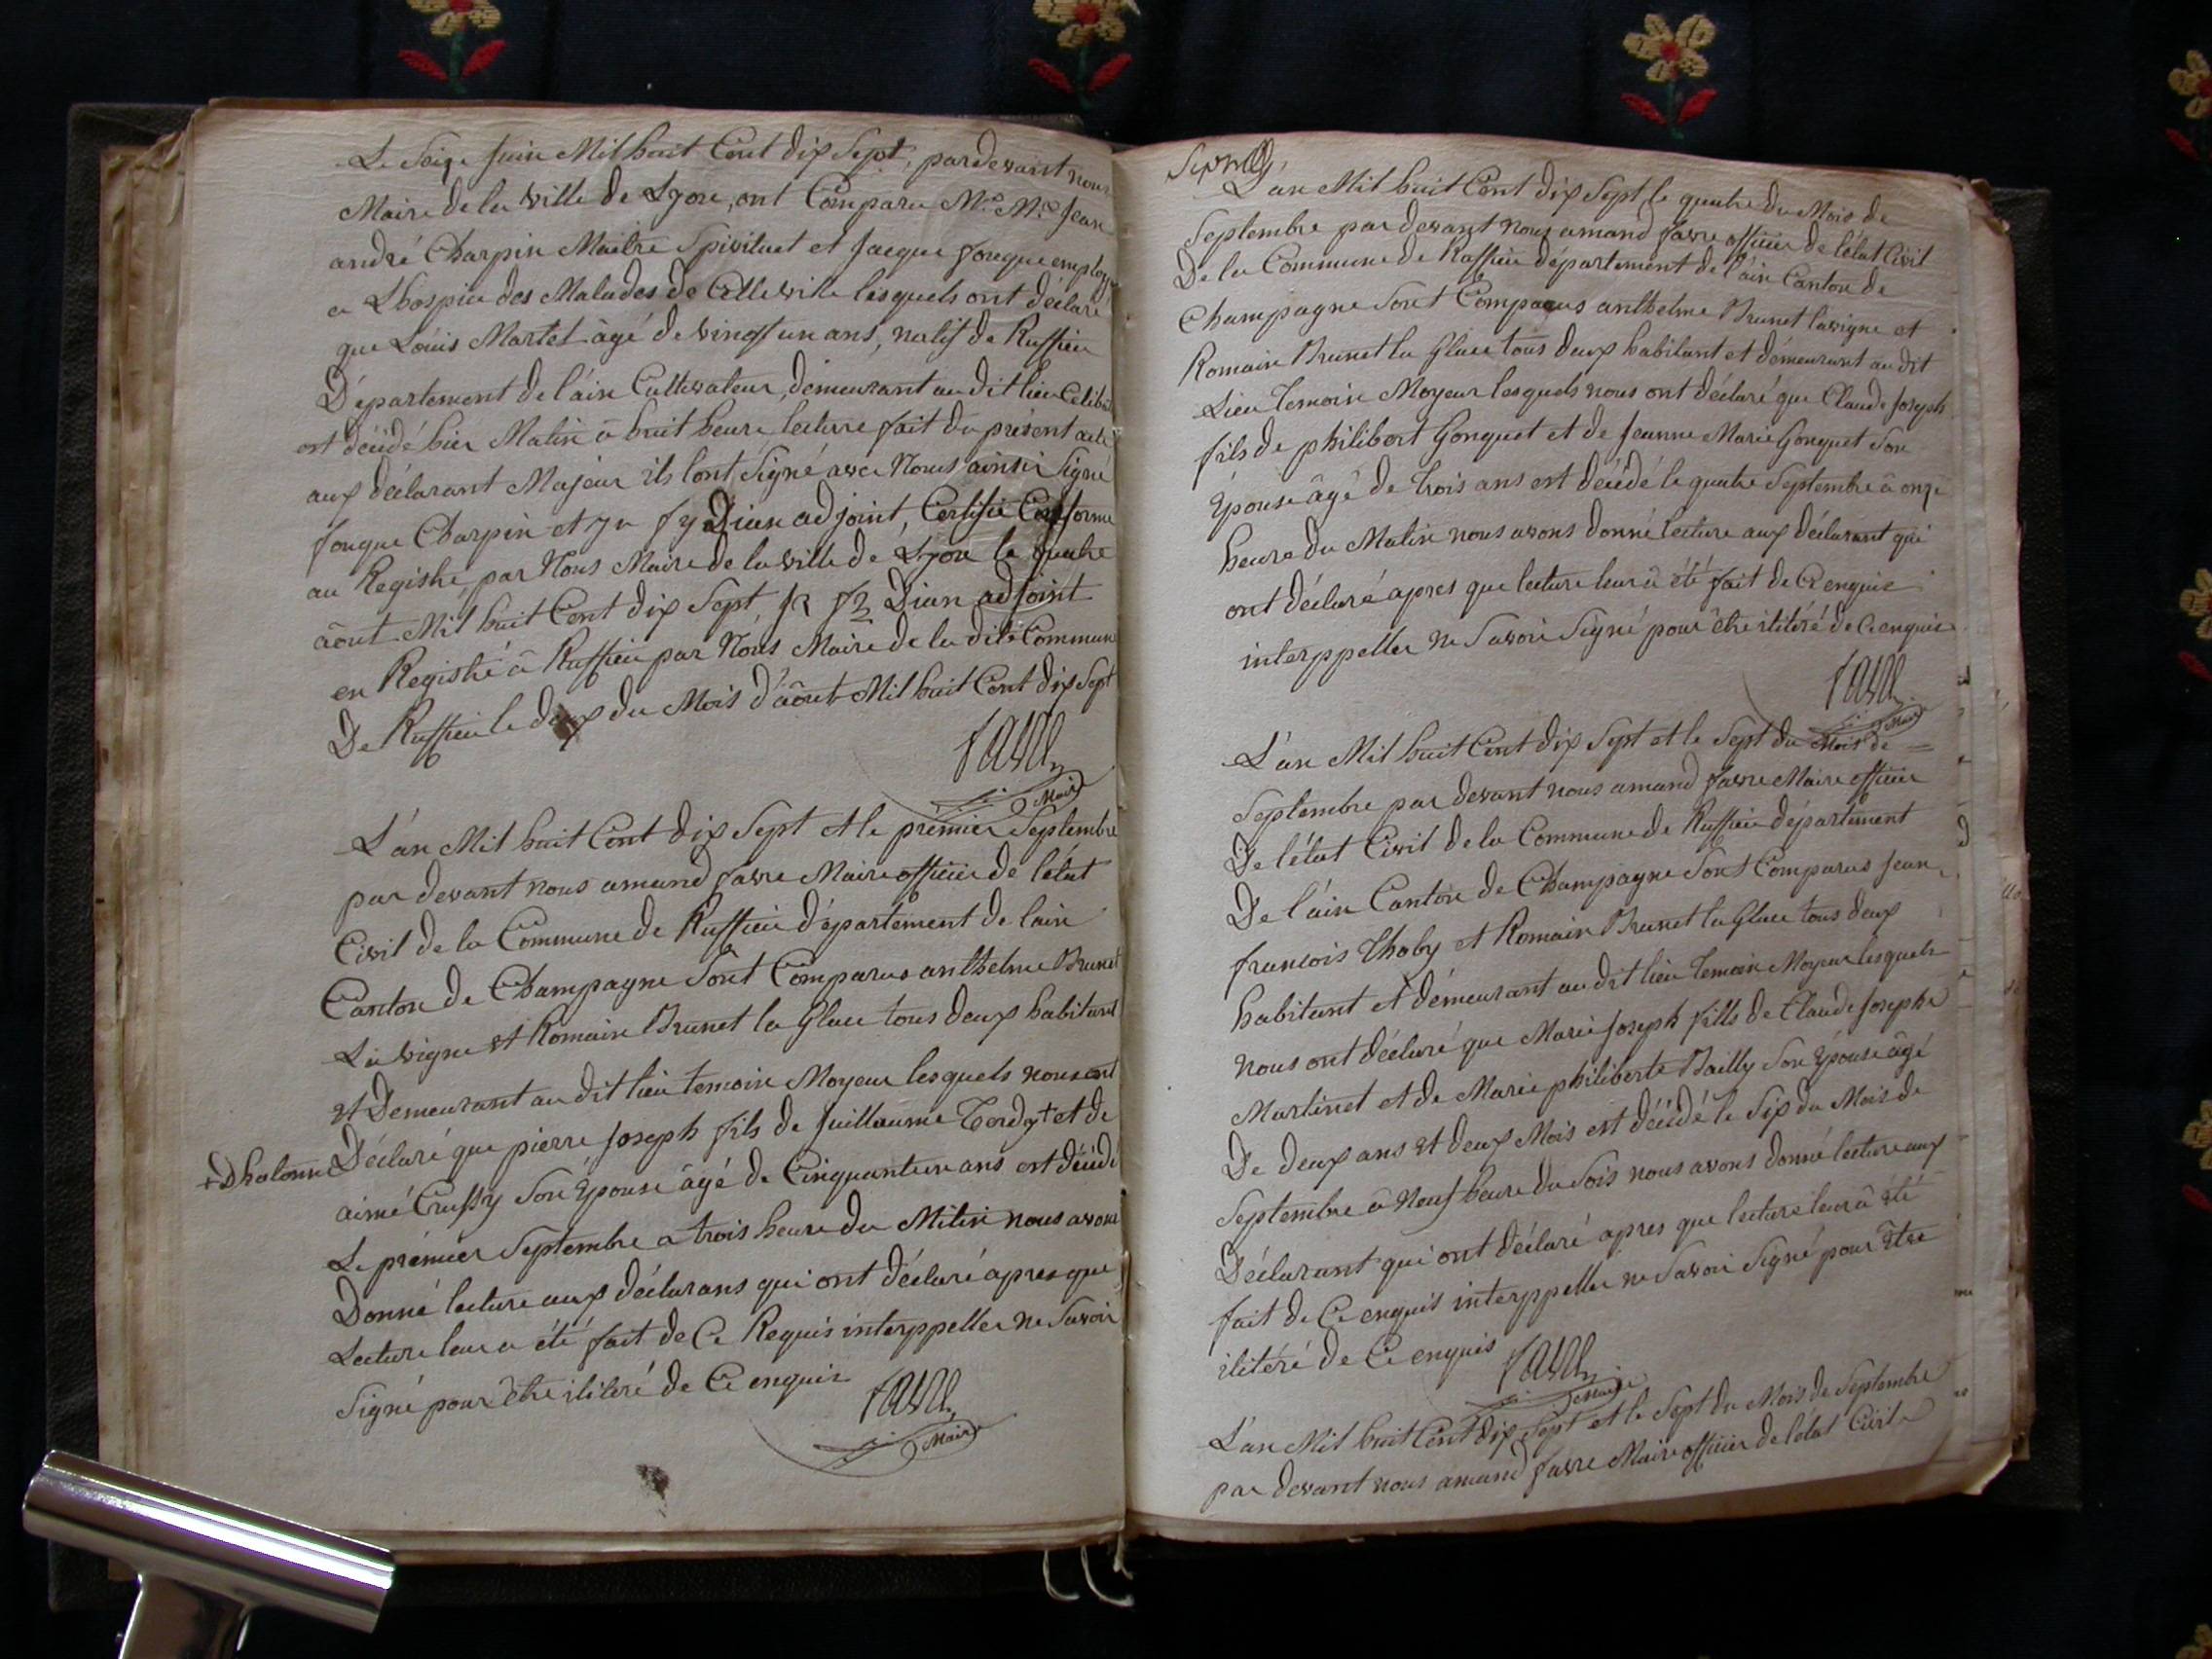 Le Seize Juin Mil huit Cent dix Sept, pardevant nous
Maire de la ville de Lyon, ont Comparu Mrs. Mre. Jean
andré Charpin Maitre Spirituel et Jacque fouque employé
a Lhospice des Malades de Cette ville lesquels ont déclaré
que Loüis Martel âgé de vingt un ans, natif de Ruffieu
Département de l'ain Cultivateur, demeurant au dit lieu Celibat
est décédé hier Matin à huit heure lecture fait du présent acte
aux déclarant Majeur ils lont Signé avec Nous ainsi Signé
fouque Charpin et Dian adjoint, Certifié Conforme
au Registre, par Nous Maire de la ville de Lyon le quatre
août Mil huit Cent dix Sept, Dian adjoint
en Registré à Ruffieu par Nous Maire de la dite Commune
De Ruffieu le deux du Mois d'août Mil huit Cent dix Sept
favre
Maire
L'an Mil huit Cent dix Sept et le premier Septembre
par devant nous amand favre Maire officier de l'état
Civil de la Commune de Ruffieu département de lain
Canton de Champagne Sont Comparus anthelme Brunet
La vigne et Romain Brunet la Glace tous deux habitant
et Demeurant au dit lieu temoin Moyeur lesquels nous ont
Déclaré que pierre Joseph fils de Juillaume Tordy + et de
+ Dhotonne
aimé Crussy Son Epouse âgé de Cinquante un ans est décédé
Le prémier Septembre a trois heure du Mitin nous avons
Donné lecture aux déclarans qui ont déclaré apres que
Lecture leur a été fait de Ce Requis interppeller ne Savoir
Signé pour être iliteré de Ce enquis
favre
Maire
L'an Mil huit Cent dix Sept, le quatre du Mois de
Septembre par devant nous amand favre officier de létat Civil
De la Commune de Ruffieu département de l'ain Canton de
Champagne Sont Comparus anthelme Brunet lavigne et
Romain Brunet la Glace tous deux habitant et démeurant au dit
Lieu Temoin Moyeur lesquels nous ont déclaré que Claude Joseph
fils de philibert Gonguet et de Jeanne Marie Gonguet Son
Epouse âgé de trois ans est décédé le quatre Septembre à onze
heure du Matin nous avons donné lecture aux déclarant qui
ont déclaré apres que lecture leur à été fait de Ce enquis
interppeller ne Savoir Signé pour être iliteré de Ce enquis
favre
Maire
L'an Mil huit Cent dix Sept et le Sept du Mois de
Septembre par devant nous amand favre Maire officier
De létat Civil de la Commune de Ruffieu département
De l'ain Canton de Champagne Sont Comparus Jean
francois Thoby et Romain Brunet la Glace tous deux
habitant et démeurant au dit lieu Temoin Moyeur lesquels
nous ont déclaré que Marie Joseph fills de Claude Josephe
Martinet et de Marie philiberte Bailly Son Epouse âgé
De deux ans et deux Mois est décédé le Six du Mois de
Septembre à Neuf heure du Soir nous avons donné lecture aux
Déclarant qui ont déclaré apres que lecture leur à été
fait de Ce enquis interppeller ne Savoir Signé pour être
iliteré de Ce enquis
favre
Maire
L'an Mil huit Cent dix Sept et le Sept du Mois de Septembre
par devant nous amand favre Maire officier de létat Civil